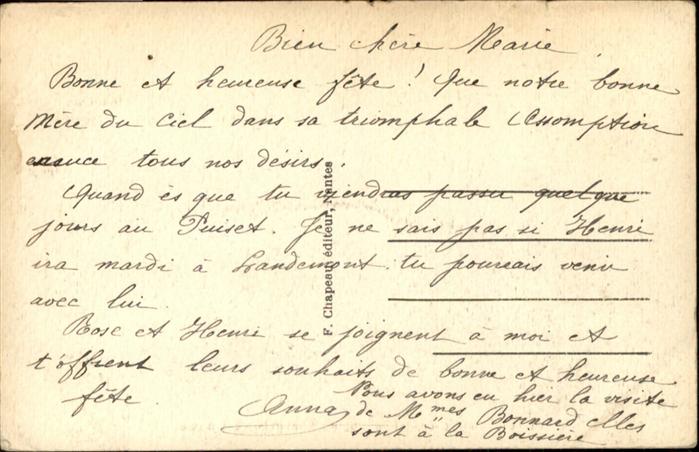 Bien chère Marie
Bonne et heureuse fête ! Que notre bonne
Mère du Ciel dans sa triomphale Assomption
exauce tous nos désirs.
Quand es que tu viendras passer quelque
jours au Puiset. Je ne sais pas si Henri
ira mardi à Landemont. tu pourrais venir
avec lui.
Rose et Henri se joignent à moi et
t'offrent leurs souhaits de bonne et heureuse
fête.
Anna
Nous avons eu hier la visite
de Mmes Bonnard elles
sont à la Boissière
F. Chapeau, éditeur, Nantes